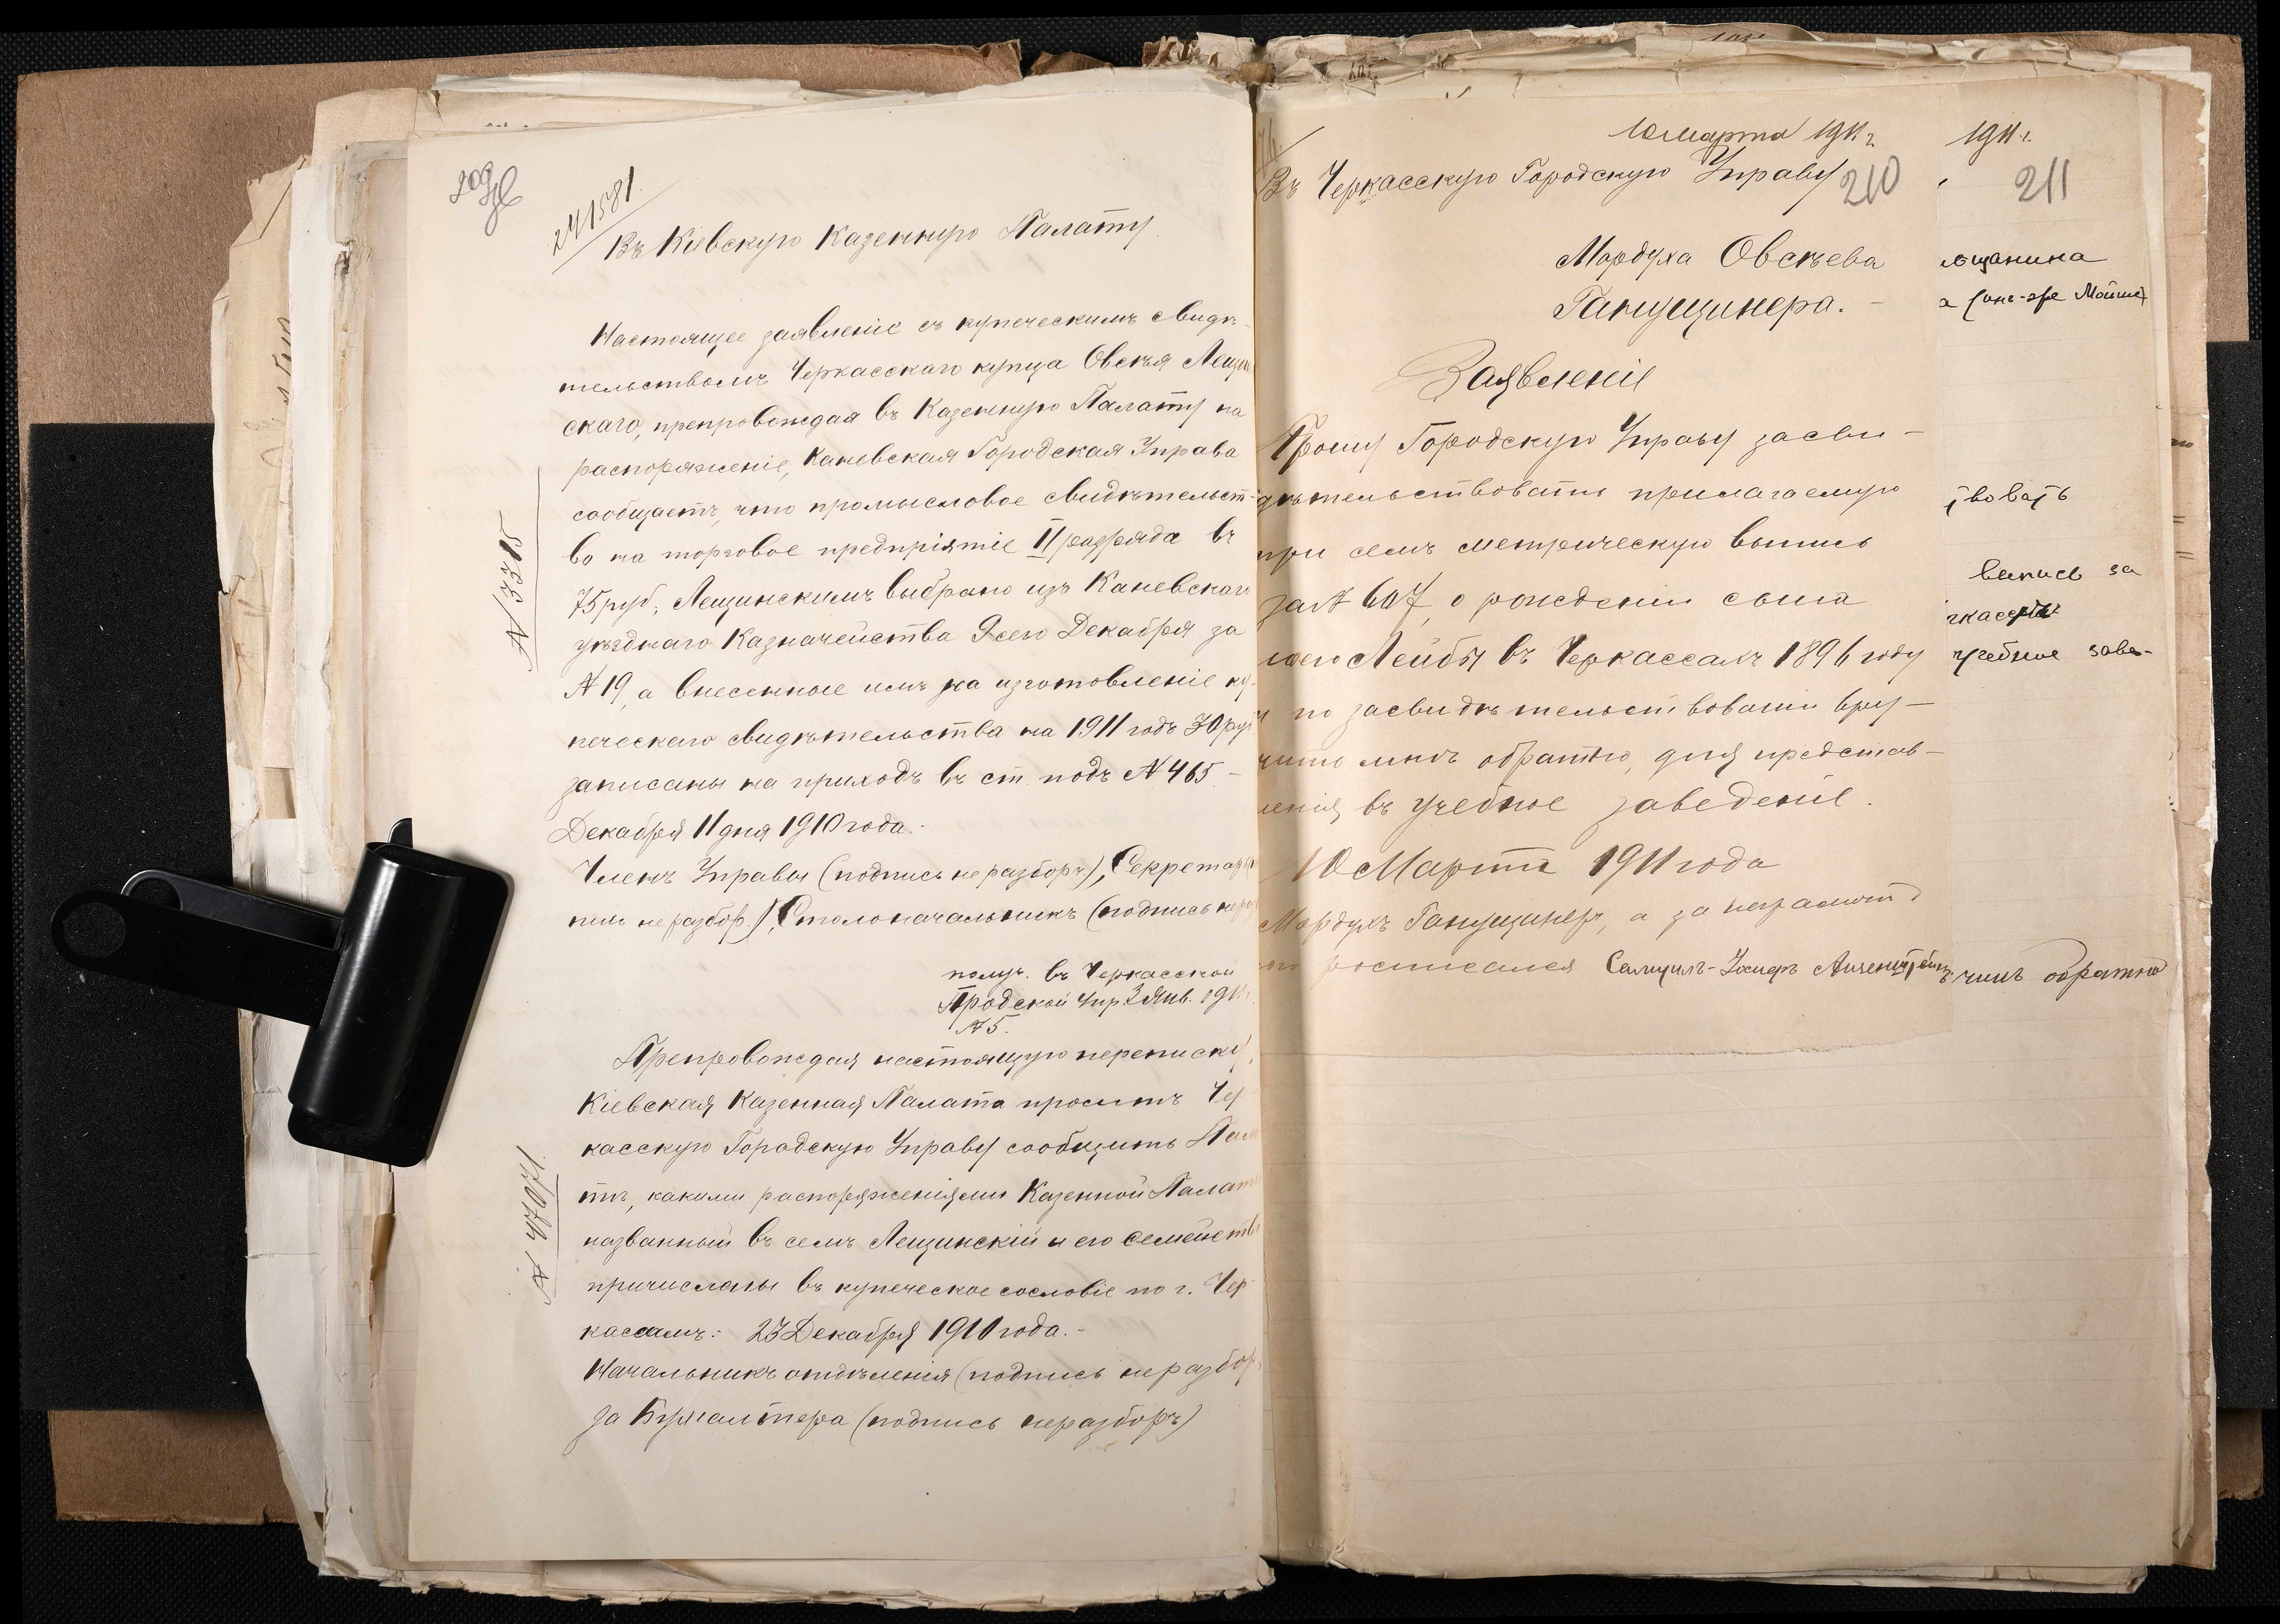 209
241581
Въ Кіевскую Казенную Палату
Настоящее заявленіе съ купеческимъ свидѣ-
тельствомъ Черкасскаго купца Овсѣя Лещин
скаго, препровождая въ Казенную Палату на
распоряженіе, Каневская Городская Управа
сообщаетъ, что промысловое свидѣтельст-
во на торговое предпріятіе II разряда въ
75 руб., Лещинскимъ выбрано изъ Каневскаго
уѣзднаго Казначейства 9 сего Декабря за
№ 19, а внесенные имъ на изготовленіе ку-
печескаго свидѣтельства на 1911 годъ 30 руб
записаны на приходъ въ ст. подъ № 465.-
Декабря 11 дня 1910 года.-
Членъ Управы (подпись неразборч), Секретарь
пись неразбор.), Столоначальникъ (подпись нераз
№ 3315
получ. въ Черкасской
Городской Упр. 3 Янв. 1911
№ 5.
Препровождая настоящую переписку,
Кіевская Казенная Палата проситъ Чер
касскую Городскую Управу сообщить Пала
тѣ, какими распоряженіями Казенной Палаты
названный въ семъ Лещинскій и его семейство
причислены въ купеческое сословіе по г. Чер
кассамъ: 23 Декабря 1910 года.-
Начальникъ отдѣленія (подпись неразбор
за Бухгалтера (подпись неразборч)
№ 47071.
10 марта 1911 г.
Въ Черкасскую Городскую Управу
210
Мордуха Овсѣева
Ганущинера.-
Заявленіе
Прошу Городскую Управу засви-
дѣтельствовать прилагаемую
при семъ метрическую выпись
за № 607, о рожденіи сына
моего Лейбы въ Черкассахъ 1896 году
и по засвидѣтельствованіи вру-
чить мнѣ обратно, для представ-
ленія въ учебное заведеніе.
10 Марта 1911 года
Мордухъ Ганущинеръ, а за неграмотн
ого росписался Самуилъ-Іосифъ
1911 г.
211
ѣщанина
а (онъ-же Мойше)
твовать
выпись за
ркассы
учебное заве-
чить обратно